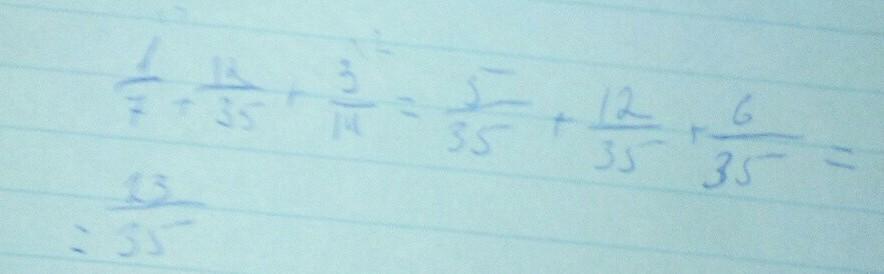 1/7 + 12/35 + 3/14 = 5/35 + 12/35 + 6/35 =
= 23/35